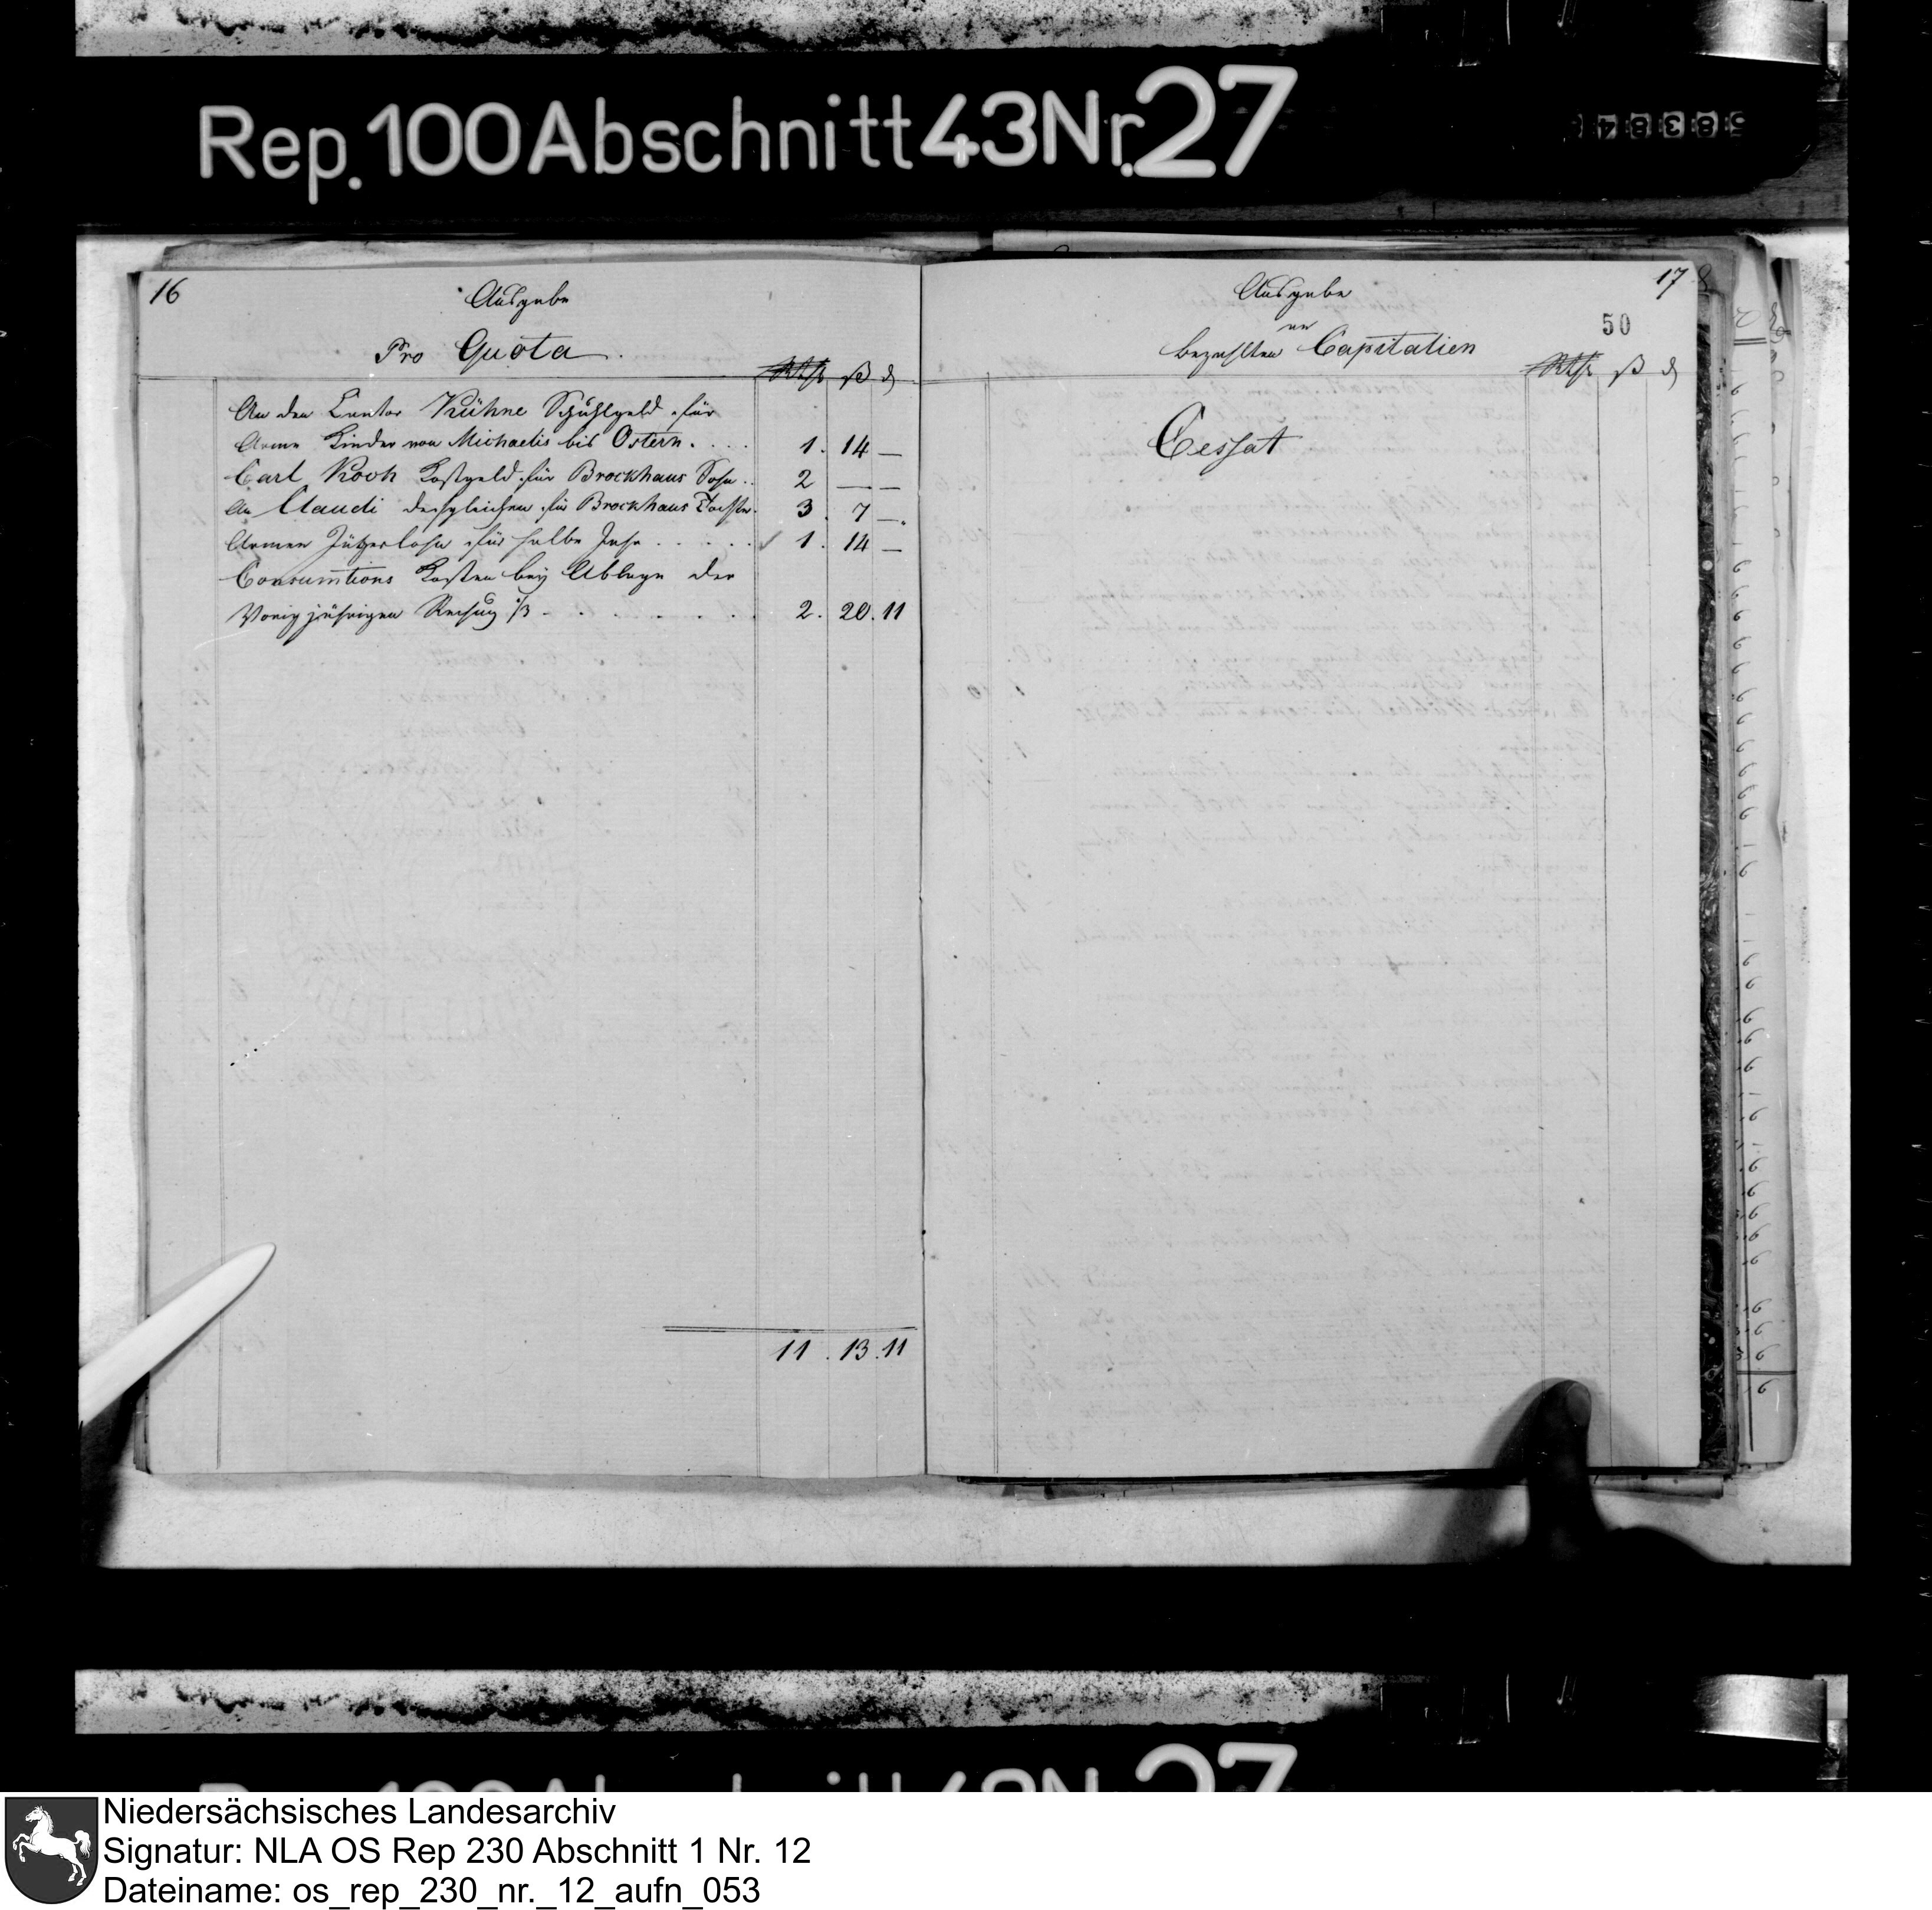 Rep. 100 Abschnitt 43 Nr. 27
58384
16
Ausgabe
Pro Quota.
Rthlr ß d
An den Cantor Kühne Schuhlgeld für
Arme Kinder von Michaelis bis Ostern. . . . 1. 14 —
Carl Koch Kostgeld für Brockhaus Sohn .. 2 — —
An Claudi desgleichen für Brockhaus Tochter. 3. 7 —.
Armen Jützerlohn für halbe Jahr . . . . . 1. 14 —
Consumtions Kosten bey Ablage der
Vorig jährigen Rechnug - . . . . . . . 2. 20. 11
11. 13. 11
17
50
Ausgabe
an
bezahlten Capitalien
Rthlr ß d
Cessat
Niedersächsisches Landesarchiv
Signatur: NLA OS Rep 230 Abschnitt 1 Nr. 12
Dateiname: os_rep_230_nr._12_aufn_053